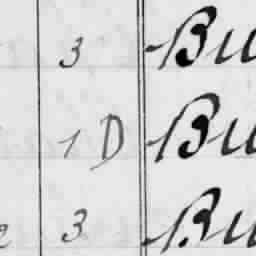 3 Bu
1 D Bu
3 Bu